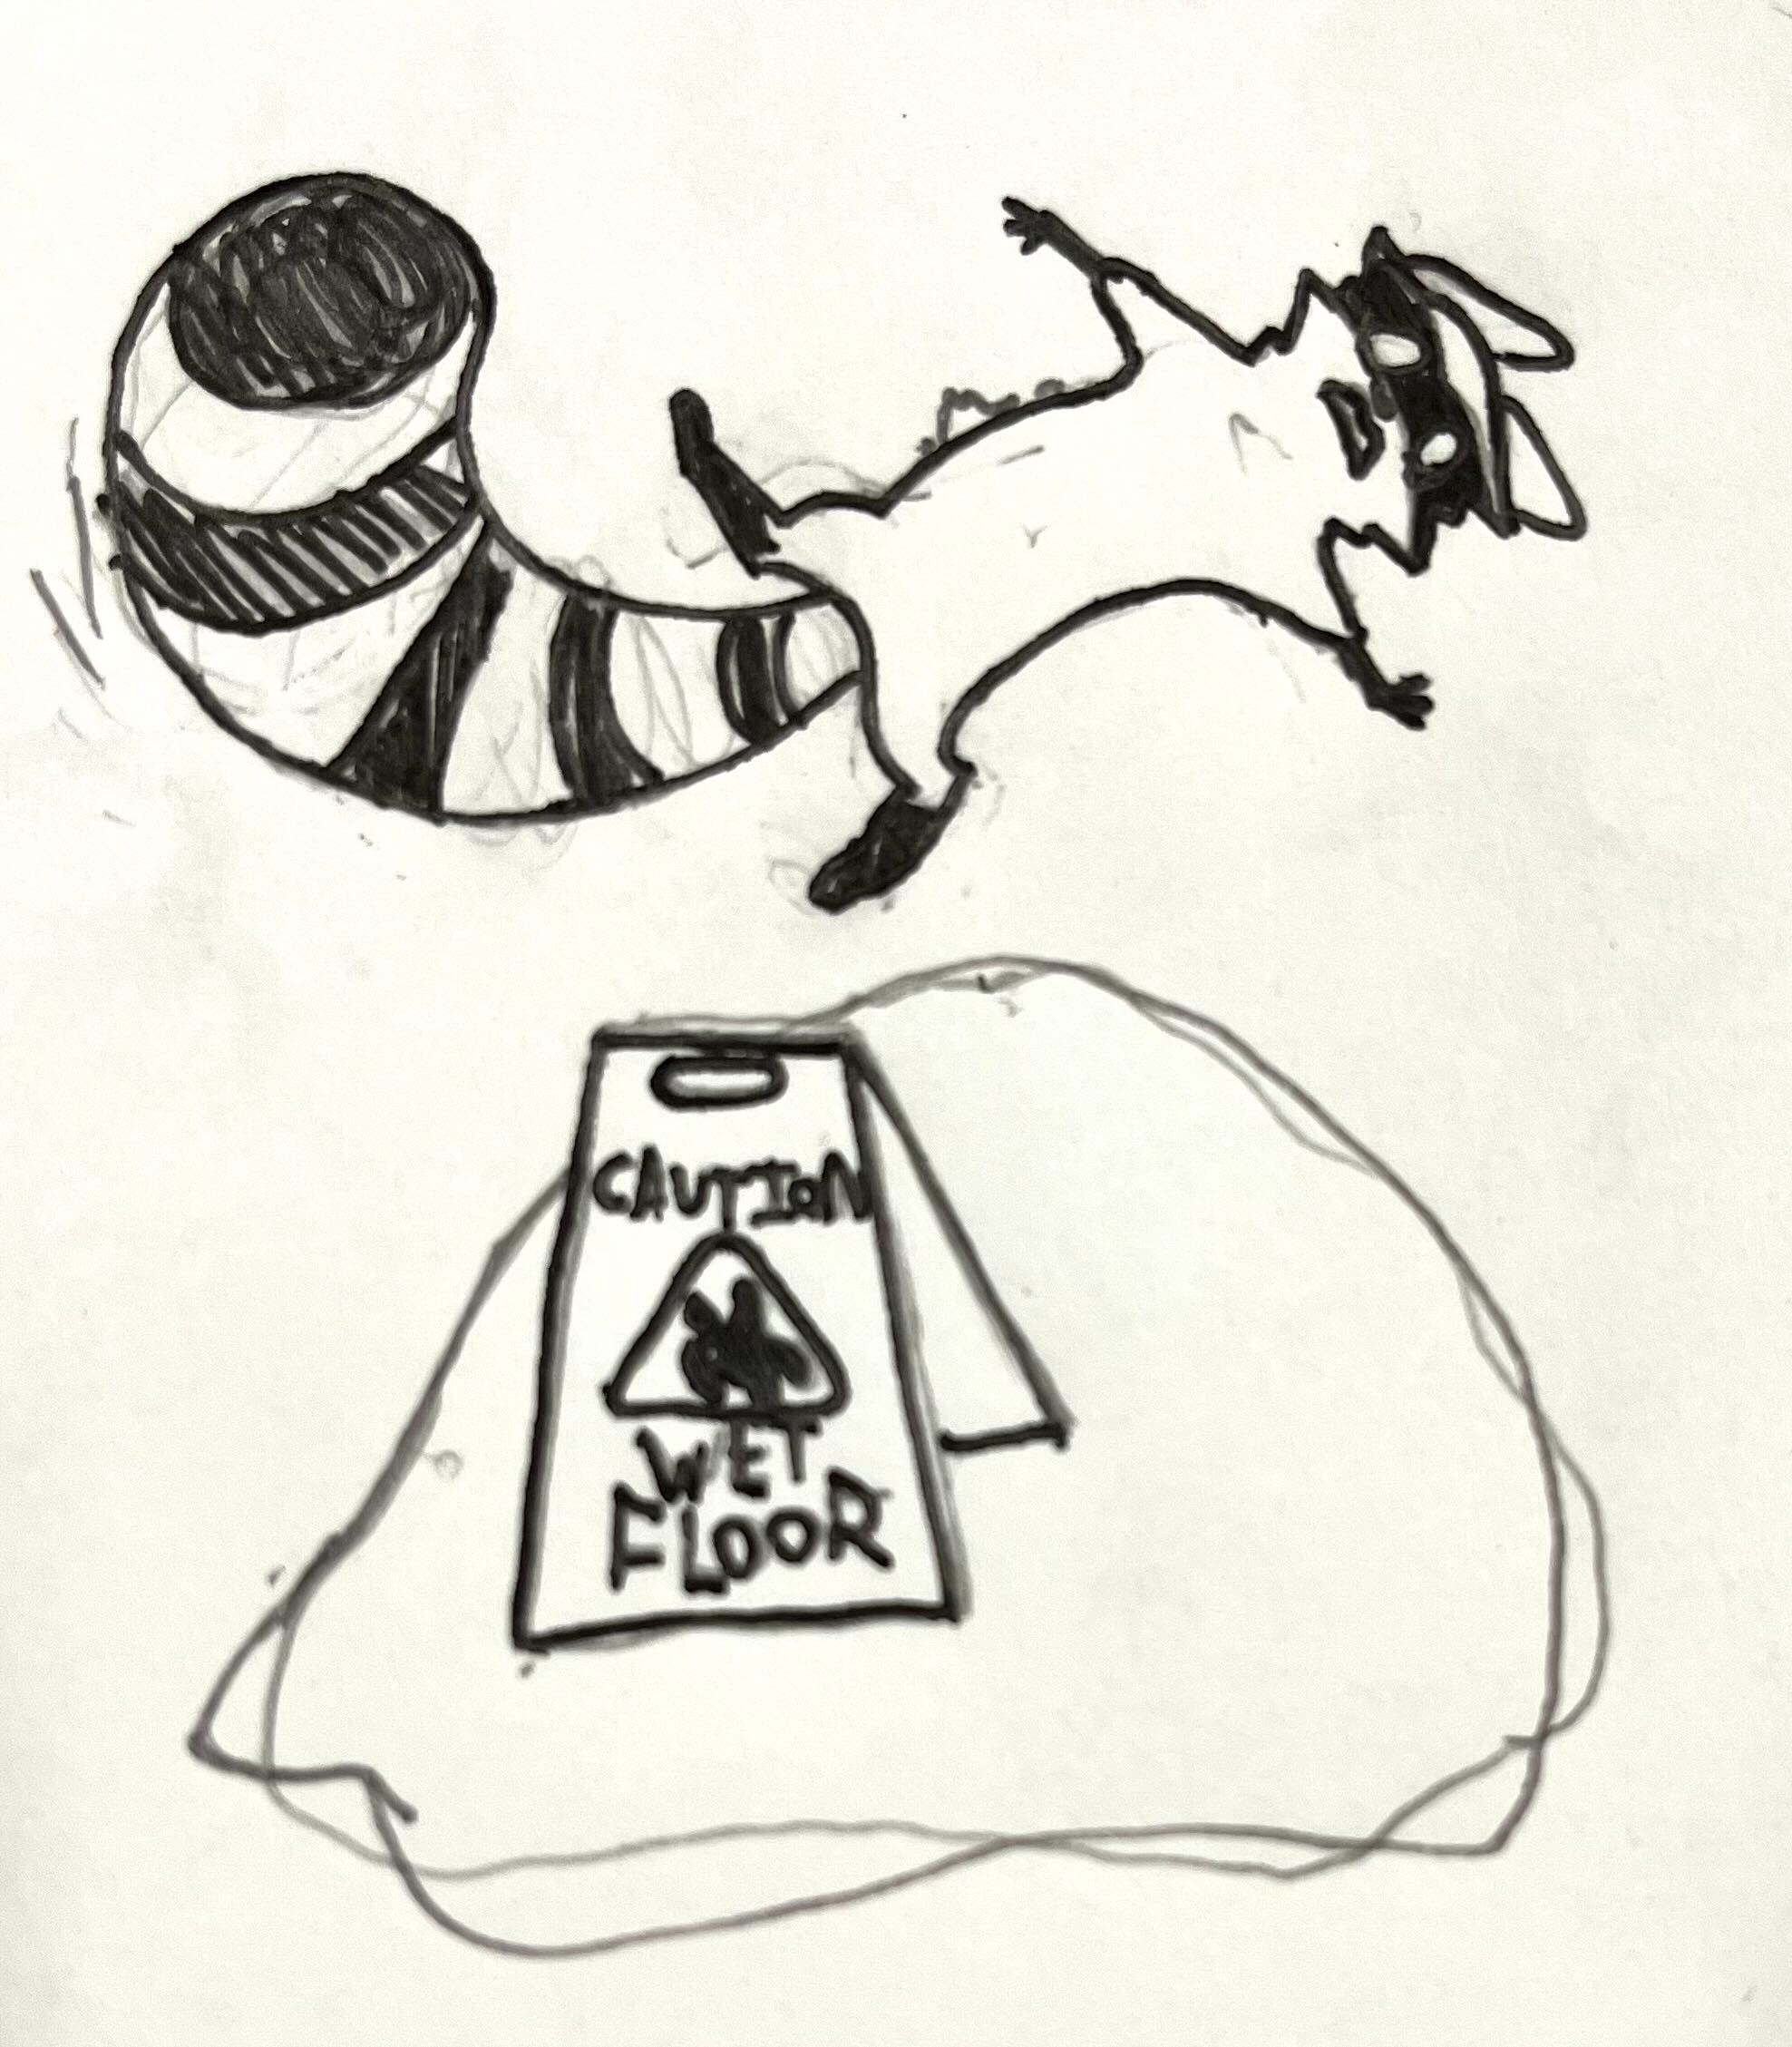 CAUTION
WET
FLOOR